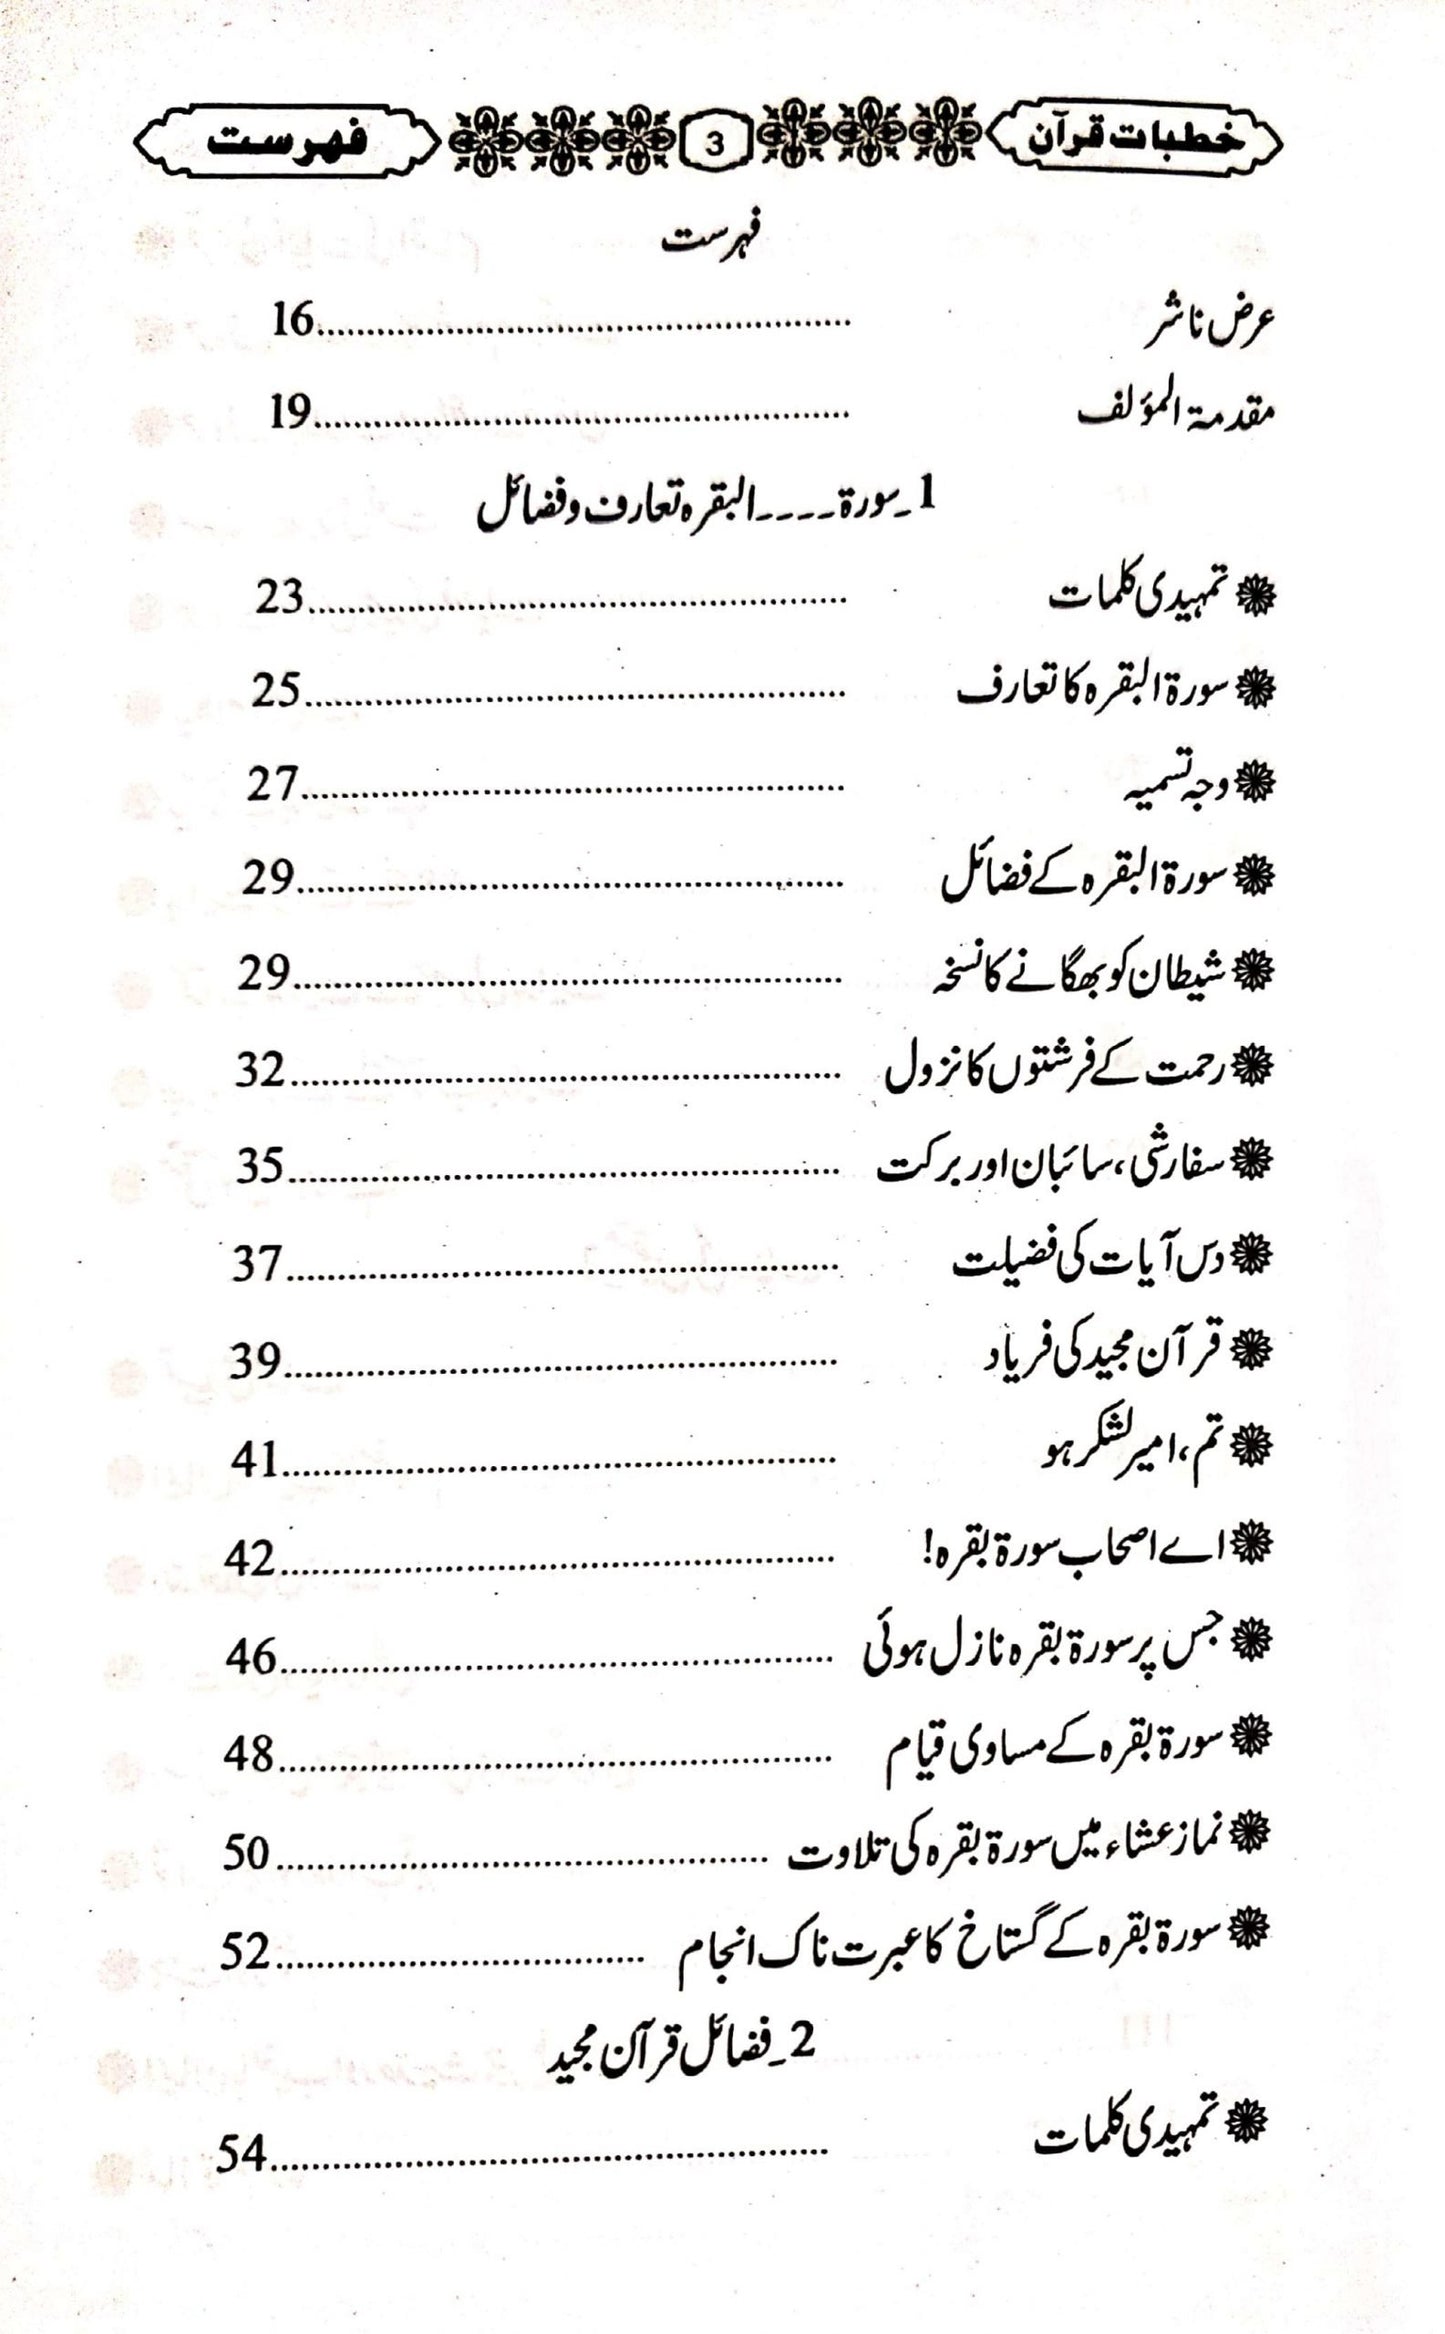 خطبات قرآن 3 فہرست
فہرست
عرض ناشر ........ 16
مقدمة المؤلف ........ 19
1۔سورۃ۔۔۔۔البقرہ تعارف و فضائل
تمہیدی کلمات ........ 23
سورۃ البقرہ کا تعارف ........ 25
وجہ تسمیہ ........ 27
سورۃ البقرہ کے فضائل ........ 29
شیطان کو بھگانے کا نسخہ ........ 29
رحمت کے فرشتوں کا نزول ........ 32
سفارشی، سائبان اور برکت ........ 35
دس آیات کی فضیلت ........ 37
قرآن مجید کی فریاد ........ 39
تم، امیر لشکر ہو ........ 41
اے اصحاب سورۃ بقرہ! ........ 42
جس پر سورۃ بقرہ نازل ہوئی ........ 46
سورۃ بقرہ کے مساوی قیام ........ 48
نماز عشاء میں سورۃ بقرہ کی تلاوت ........ 50
سورۃ بقرہ کے گستاخ کا عبرت ناک انجام ........ 52
2۔فضائل قرآن مجید
تمہیدی کلمات ........ 54